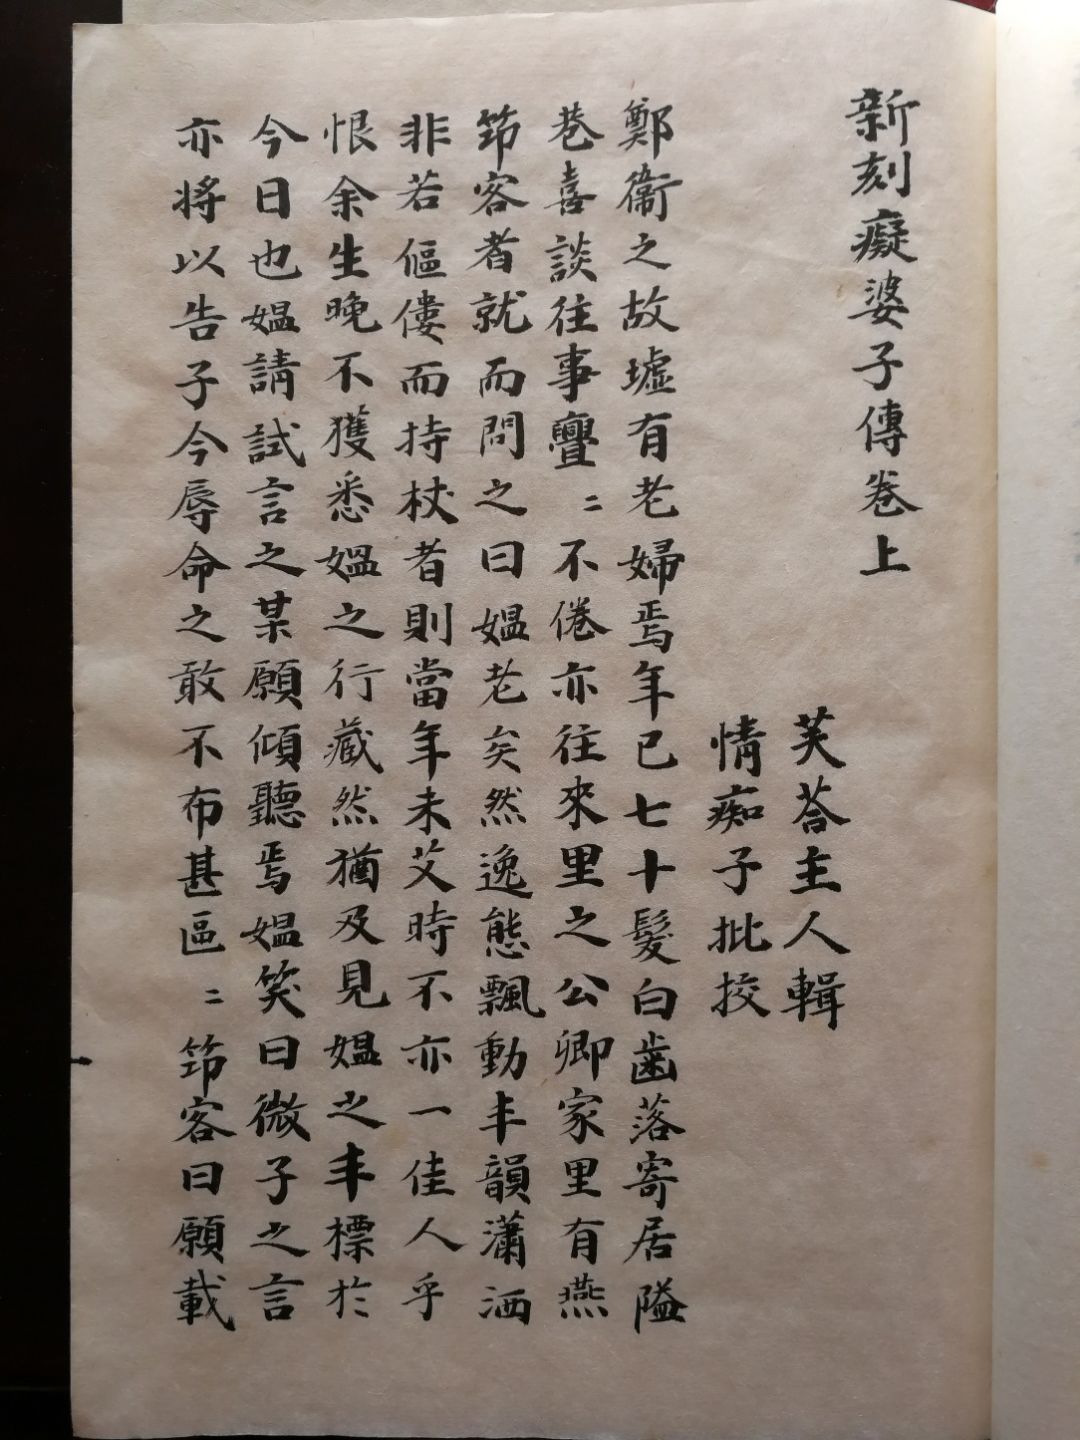 新刻癡婆子傳卷上
芙蓉主人輯
情痴子批挍
鄭衞之故墟有老婦焉年已七十髮白齒落寄居隘
巷喜談往事亹〻不倦亦往來里之公卿家里有燕
筇客者就而問之曰媼老矣然逸態飄動丰韻瀟洒
非若傴僂而持杖者則當年未艾時不亦一佳人乎
恨余生晚不獲悉媼之行藏然猶及見媼之丰標於
今日也媼請試言之某願傾聽焉媼笑曰微子之言
亦將以告子今辱命之敢不布甚區〻筇客曰願載